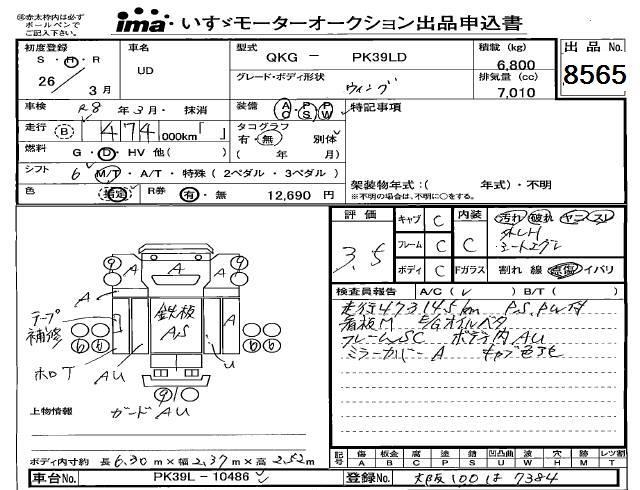 ㊟赤太枠内は必ず
ボールペンで
ご記入下さい。
ima いすゞモーターオークション出品申込書
初度登録
S・H・R
26 3月
車名
UD
型式
QKG - PK39LD
グレード・ボディ形状
ウィング
積載 (kg)
6,800
排気量 (cc)
7,010
出品No.
8565
車検 R8 年3月・ 抹消
装備 AC・PS・PW
特記事項
走行 B 474 000km「 」
タコグラフ
有・無 別体
( 年 月)
燃料 G・D・HV 他( )
シフト 6 M/T・A/T・特殊 (2ペダル・3ペダル)
架装物年式:( 年式)・不明
※不明の場合は、不明に○をする。
色 R券 有・無 12,690 円
評価
3.5
キャブ C
フレーム C
ボディ C
内装
C
汚れ 破れ ヤニ スレ
シートコゲ
Fガラス 割れ 線 点傷 イバリ
検査員報告 A/C(レ) B/T( )
走行473145km P.S.P.W付
看板M E/Gオイルベタ
フレームSC ボデー内AU
ミラーカバーA キャブ色アセ
A
A
A
A
A
9
9
鉄板
AS
テープ
補修
6
6
6
6
ホロT
AU
U
9
ガードAU
上物情報
ボディ内寸約 長6.30m×幅2.37m×高2.52m
記号 傷A 板金B 腐C 塗P 錆S 凹凸曲U 波W 穴H 跡M レンズ割T
車台No. PK39L-10486
登録No. 大阪100は7384